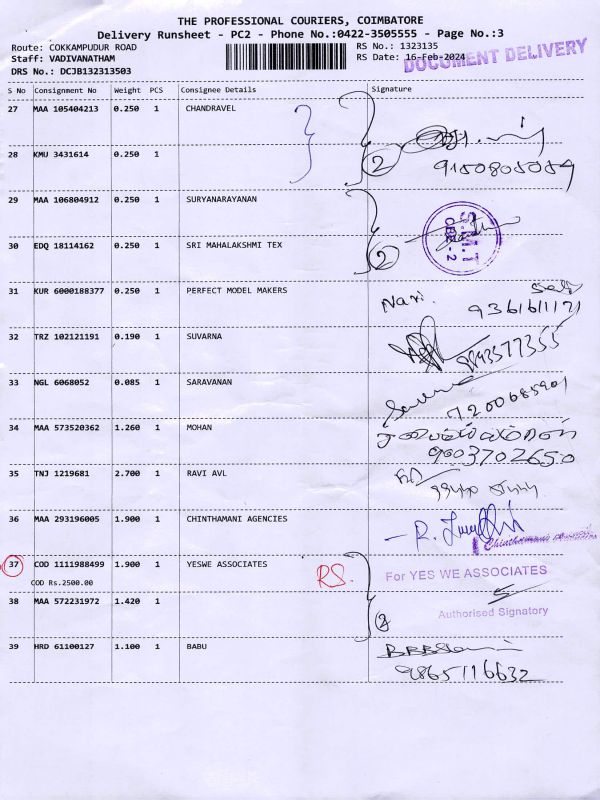 THE PROFESSIONAL COURIERS, COIMBATORE
Delivery Runsheet - PC2 - Phone No.:0422-3505555 - Page No.:3
Route: COKKAMPUDUR ROAD
RS No.: 1323135
Staff: VADIVANATHAM
RS Date: 16-Feb-2024
DOCUMENT DELIVERY
DRS No.: DCJB132313503
S No Consignment No Weight PCS Consignee Details Signature
27 MAA 105404213 0.250 1 CHANDRAVEL
28 KMU 3431614 0.250 1
2
9150805059
29 MAA 106804912 0.250 1 SURYANARAYANAN
30 EDQ 18114162 0.250 1 SRI MAHALAKSHMI TEX
2
S.M.T
CBE - 2
31 KUR 6000188377 0.250 1 PERFECT MODEL MAKERS
Navi.
9361611121
32 TRZ 102121191 0.190 1 SUVARNA
9843577355
33 NGL 6068052 0.085 1 SARAVANAN
7200685901
34 MAA 573520362 1.260 1 MOHAN
9003702650
35 TNJ 1219681 2.700 1 RAVI AVL
36 MAA 293196005 1.900 1 CHINTHAMANI AGENCIES
37 COD 1111988499 1.900 1 YESWE ASSOCIATES RS.
For YES WE ASSOCIATES
COD Rs.2500.00
38 MAA 572231972 1.420 1
2
Authorised Signatory
39 HRD 61100127 1.100 1 BABU
9865116632